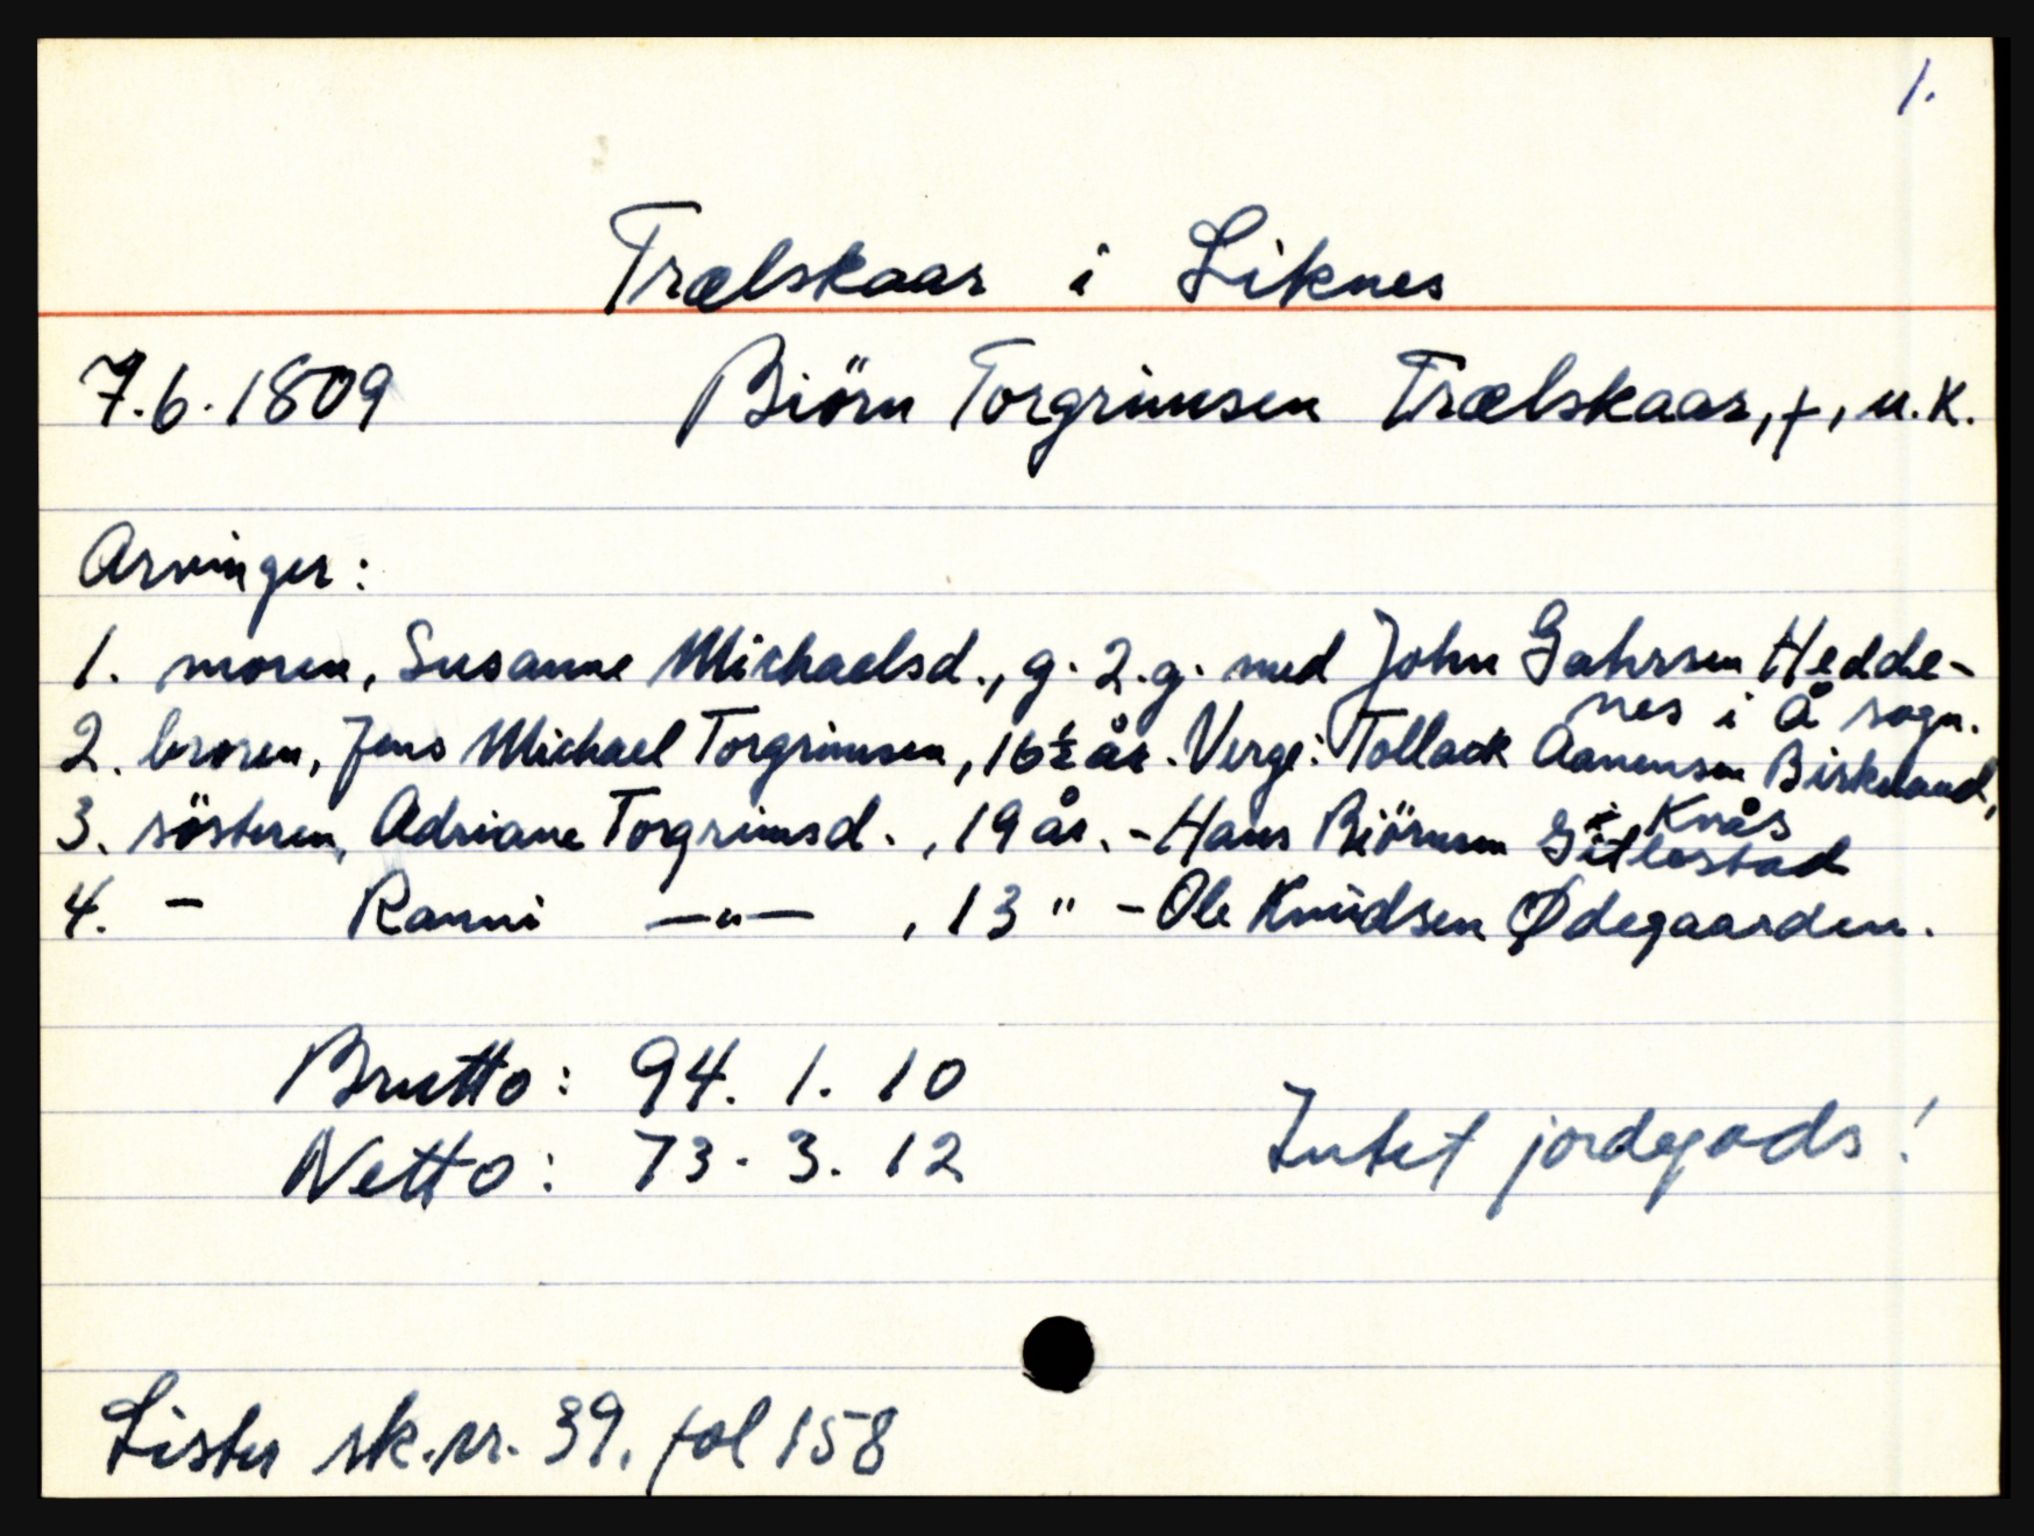 1.
Trælskaar i Liknes
7.6.1809 Biörn Torgrimsen Trælskaar, +, u.K.
Arvinger:
1. moren, Susanne Michaelsd., g. 2.g. med John Gahrsen Hedde-
nes i Å sogn.
2. broren, Jens Michael Torgrimsen, 16½ år. Verge: Tollack Aanensen Birkeland,
i Kvås
3. søsteren, Adriane Torgrimsd., 19 år. - Hans Biörnsen Gitlestad
4. - Ranni —"— , 13 " - Ole Knudsen Ødegaarden.
Brutto: 94. 1. 10
Netto: 73. 3. 12
Intet jordegods!
Lister sk.nr. 39. fol 158